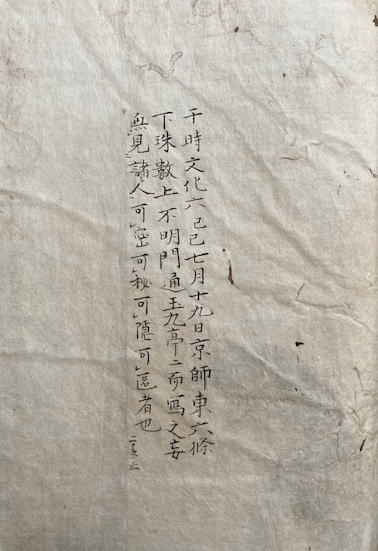 于時文化六己巳七月十九日京師東六條
下珠數上不明門通玉九亭ニ而寫之妄
無見諸人可密可秘可隠可匿者也